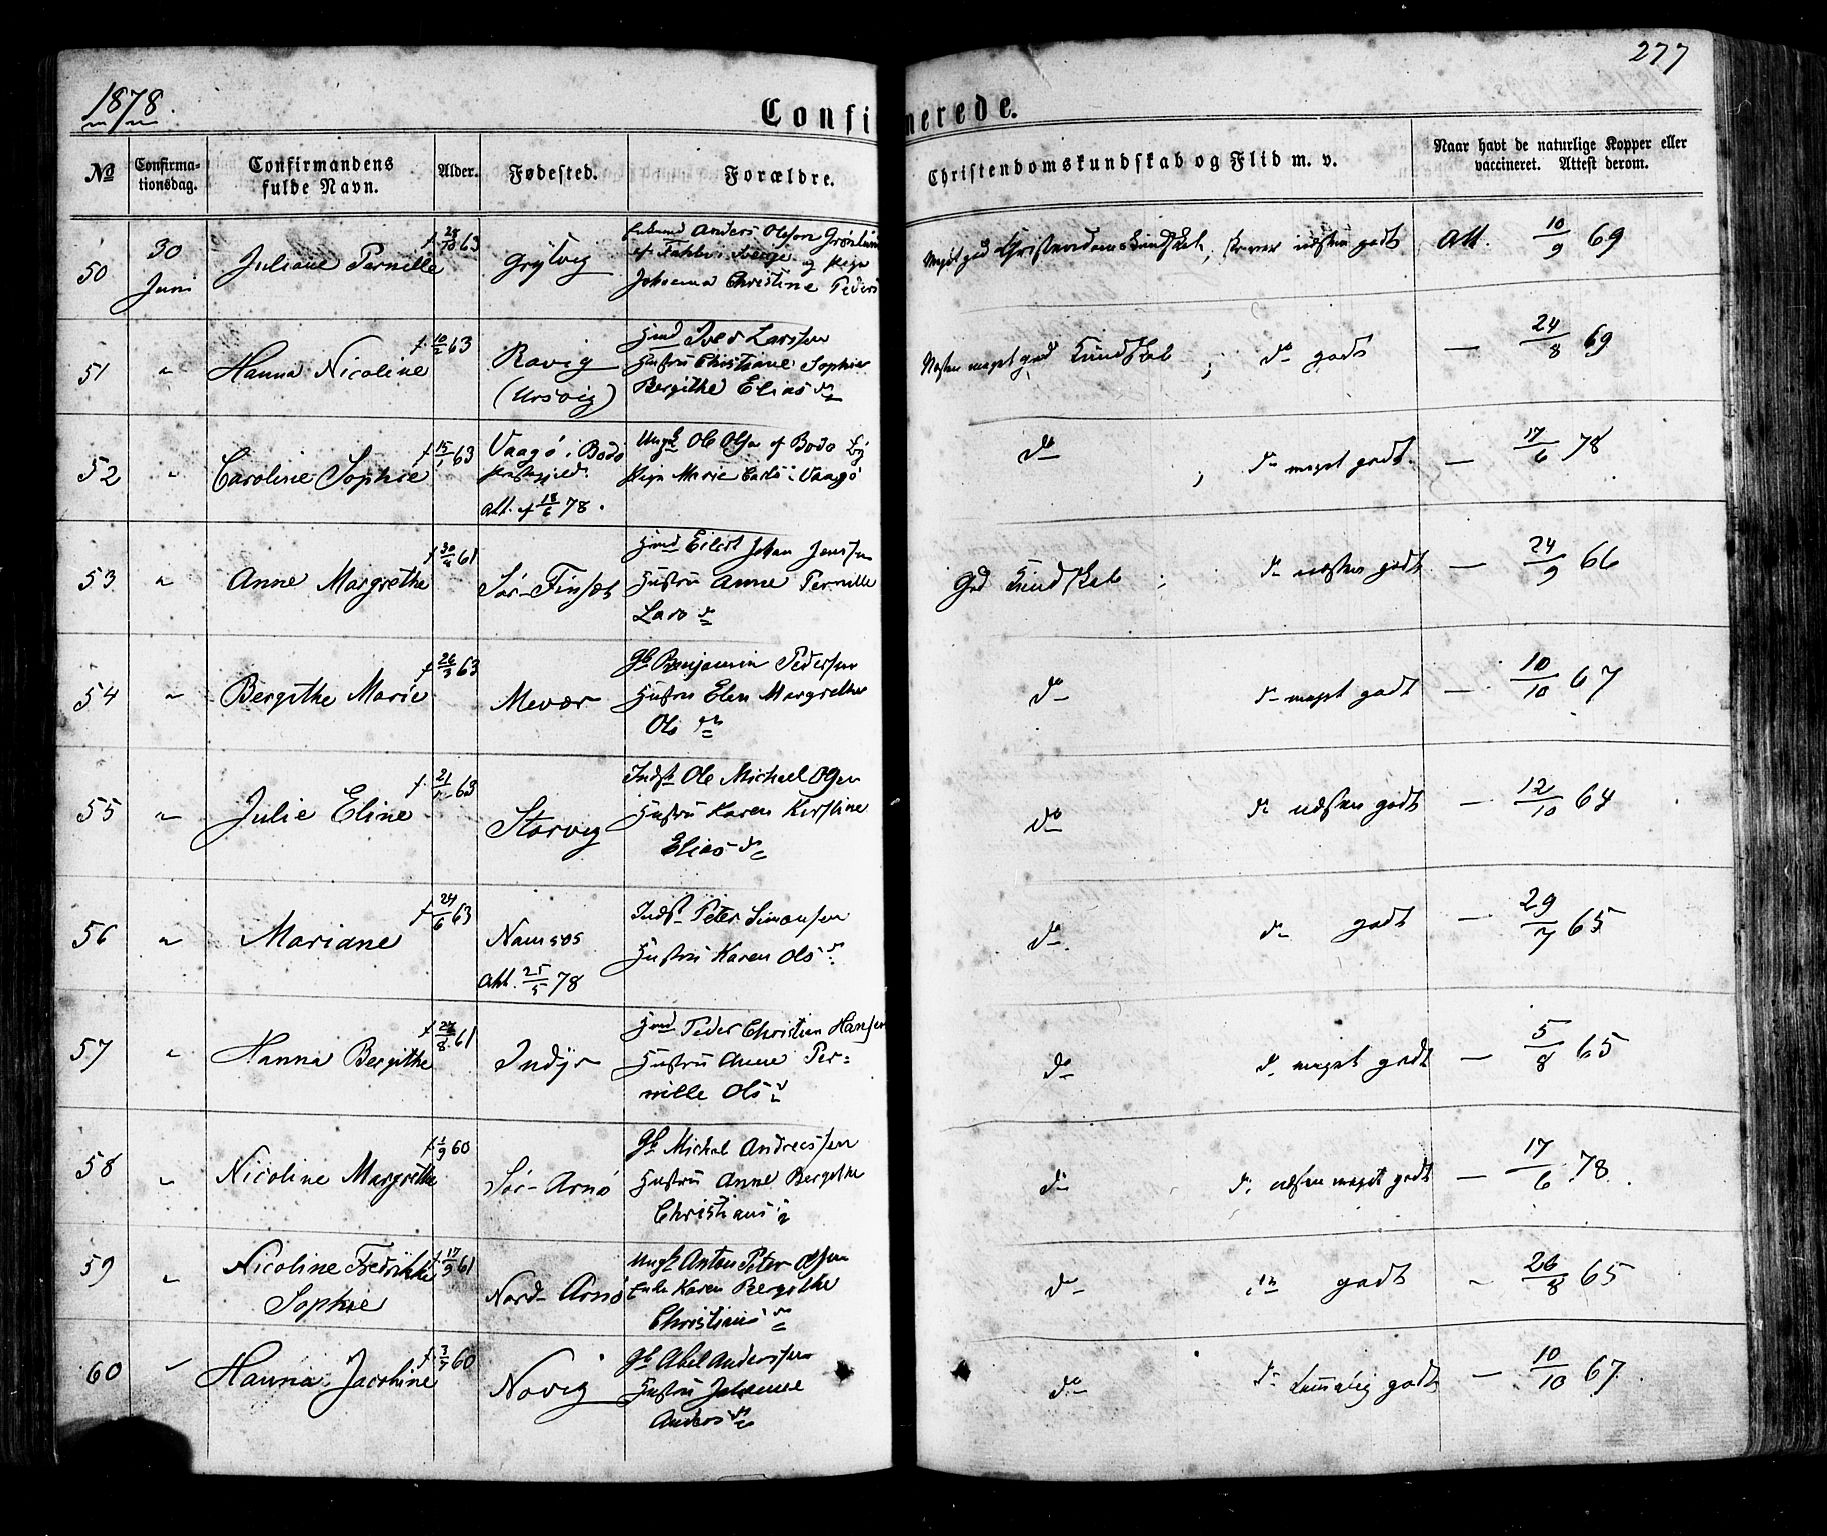 1878.
277
Confirmerede.
No
Confirma-
tionsdag.
Confirmandens
fulde Navn.
Alder.
Fødested.
Forældre.
Christendomskundskab og Flid m. v.
Naar havt de naturlige Kopper eller
vaccineret. Attest derom.
50
30
Juni
Juliane Pernille
63
Grytvig
Anders Olsson Grønlund
og Pige
Johanna Christine Peders
Meget god Christendomskundskab, næsten godt
Att. 10/9 69
51 "
Hanna Nicoline
f. 10/2 63
Ravig
(Ursvig)
Hmd Iver Larssen
Hustru Christiane Sophie
Bergithe Elias dr
Næsten meget god Kundskab, do godt
— 24/8 69
52 "
Caroline Sophie
f 15/1 63
Vaagø i Bodø
Præstegjeld.
Att. af 18/6 78.
Ungk Ole Olsen af Bodø By
Pige Maria i Vaagø
do , do meget godt — 17/6 78
53 "
Anne Margrethe
f 30/4 61
Sør-Finset
Hmd Eilert Johan Jenssen
Hustru Anne Pernille
Lars dr
God Kundskab , do næsten godt — 24/9 66
54 "
Bergithe Marie
f 26/3 63
Mevær
Gb Benjamin Pedersen
Hustru Elen Margrethe
Ols dr
do do meget godt — 10/10 67
55 "
Julie Eline
f. 21/1 63
Storvig
Indst Ole Michael Olsen
Hustru Karen Kirstine
Elias dr
do do næsten godt — 12/10 64
56 "
Mariane
f 24/6 63
Namsos
Att. 25/5 78
Indst Peter Simonsen
Hustru Karen Ols dr
do do godt — 29/7 65
57 "
Hanna Bergithe
f 28/8 61
Indyr
Hmd Peder Christian Hansen
Hustru Anne Per=
nille Ols dr
do do meget godt — 5/8 65
58 "
Nicoline Margrethe
f 1/9 60
Sør-Arnø
Gb Michal Andreassen
Hustru Anne Bergithe
Christians dr
do do næsten meget godt — 17/6 78.
59 "
Nicoline Fredrikke
Sophie
f. 17/9 61
Nord-Arnø
Ungk Anton Peter Olsen
Enke Karen Bergithe
Christians dr
do do godt " 26/8 65
60 "
Hanna Jacobine
f 3/7 60
Novig
Gb Abel Anderssen
Hustru Johanne
Anders dr
do do temmelig godt — 10/10 67.